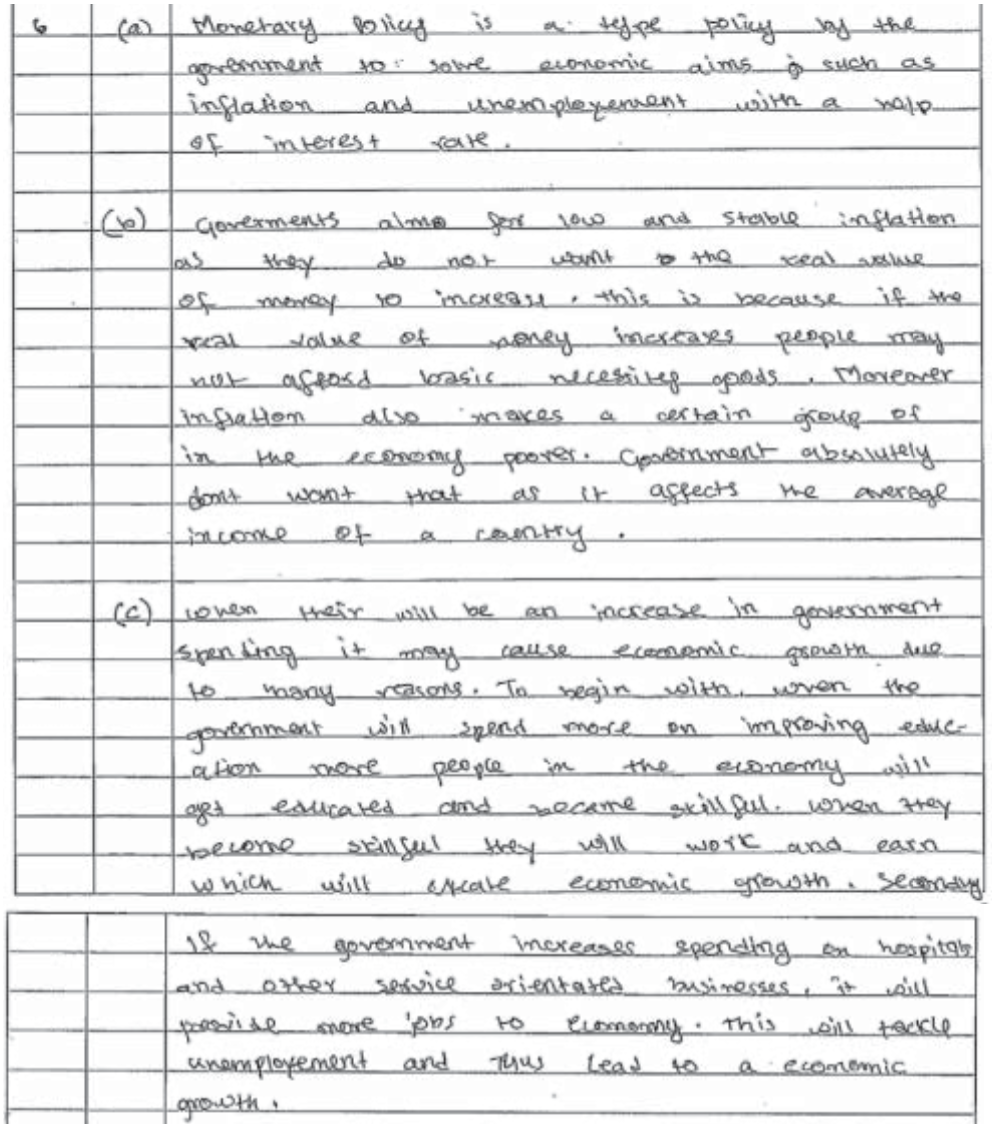 6 (a) Monetary Policy is a type policy by the
government to solve economic aims such as
inflation and unemployement with a help
of interest rate.
(b) Goverments aims for low and stable inflation
as they do not want the real value
of money to increase. this is because if the
real value of money increases people may
not afford basic necessities goods. Moreover
inflation also makes a certain group of
in the economy poorer. Government absolutely
dont want that as it affects the average
income of a country.
(c) when their will be an increase in government
spending it may cause economic growth due
to many reasons. To begin with, when the
government will spend more on improving educ-
ation more people in the economy will
get educated and become skillful. when they
become skillful they will work and earn
which will create economic growth. Secondly
If the government increases spending on hospitals
and other service orientated businesses, it will
provide more jobs to economy. This will tackle
unemployement and thus lead to a economic
growth.